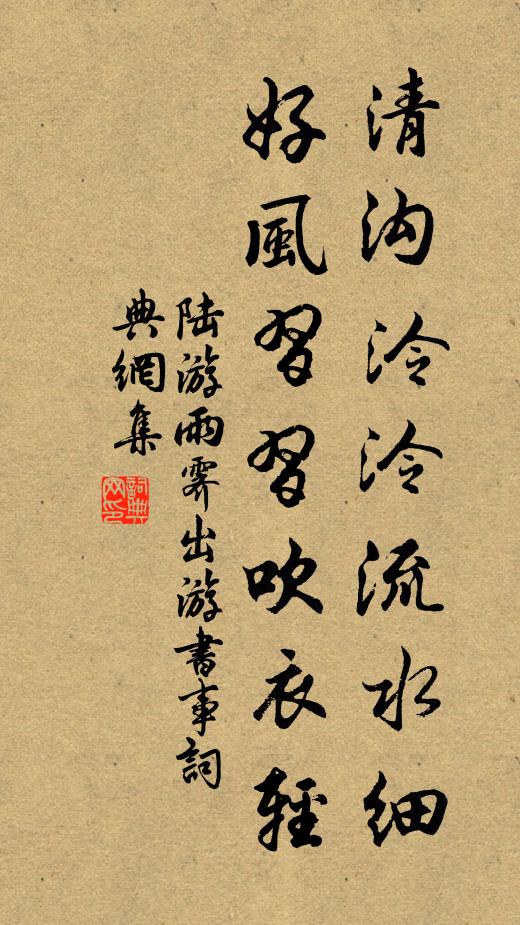 清沟泠泠流水細
好風習習吹衣輕
陆游雨霽出游書事詞
典網集
詞典網印